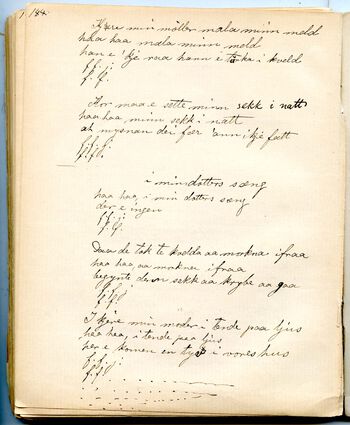 184.
Kjære min møller mala minn meld
haa haa mala minn meld
han e 'kje rua hann e taka i kveld
f. f. j.
f. f.
Hor maa e sette minn sekk i natt
haa haa minn sekk i natt
at mysnan dei fær 'ann ikje fatt
f. f. j.
f. f.
i min dotters seng
haa haa, i min dotters seng
der e ingen
f. f. j.
f. f.
Daa de tok te kvelda aa morkna ifraa
haa haa, aa morkner ifraa
begynte den sekk aa krybe aa gaa
f. f. j.
f. f.
I kjære min moder i tende paa ljus
haa haa, i tende paa ljus
her e komen en tyv i vores hus
f. f. j.
f. f.